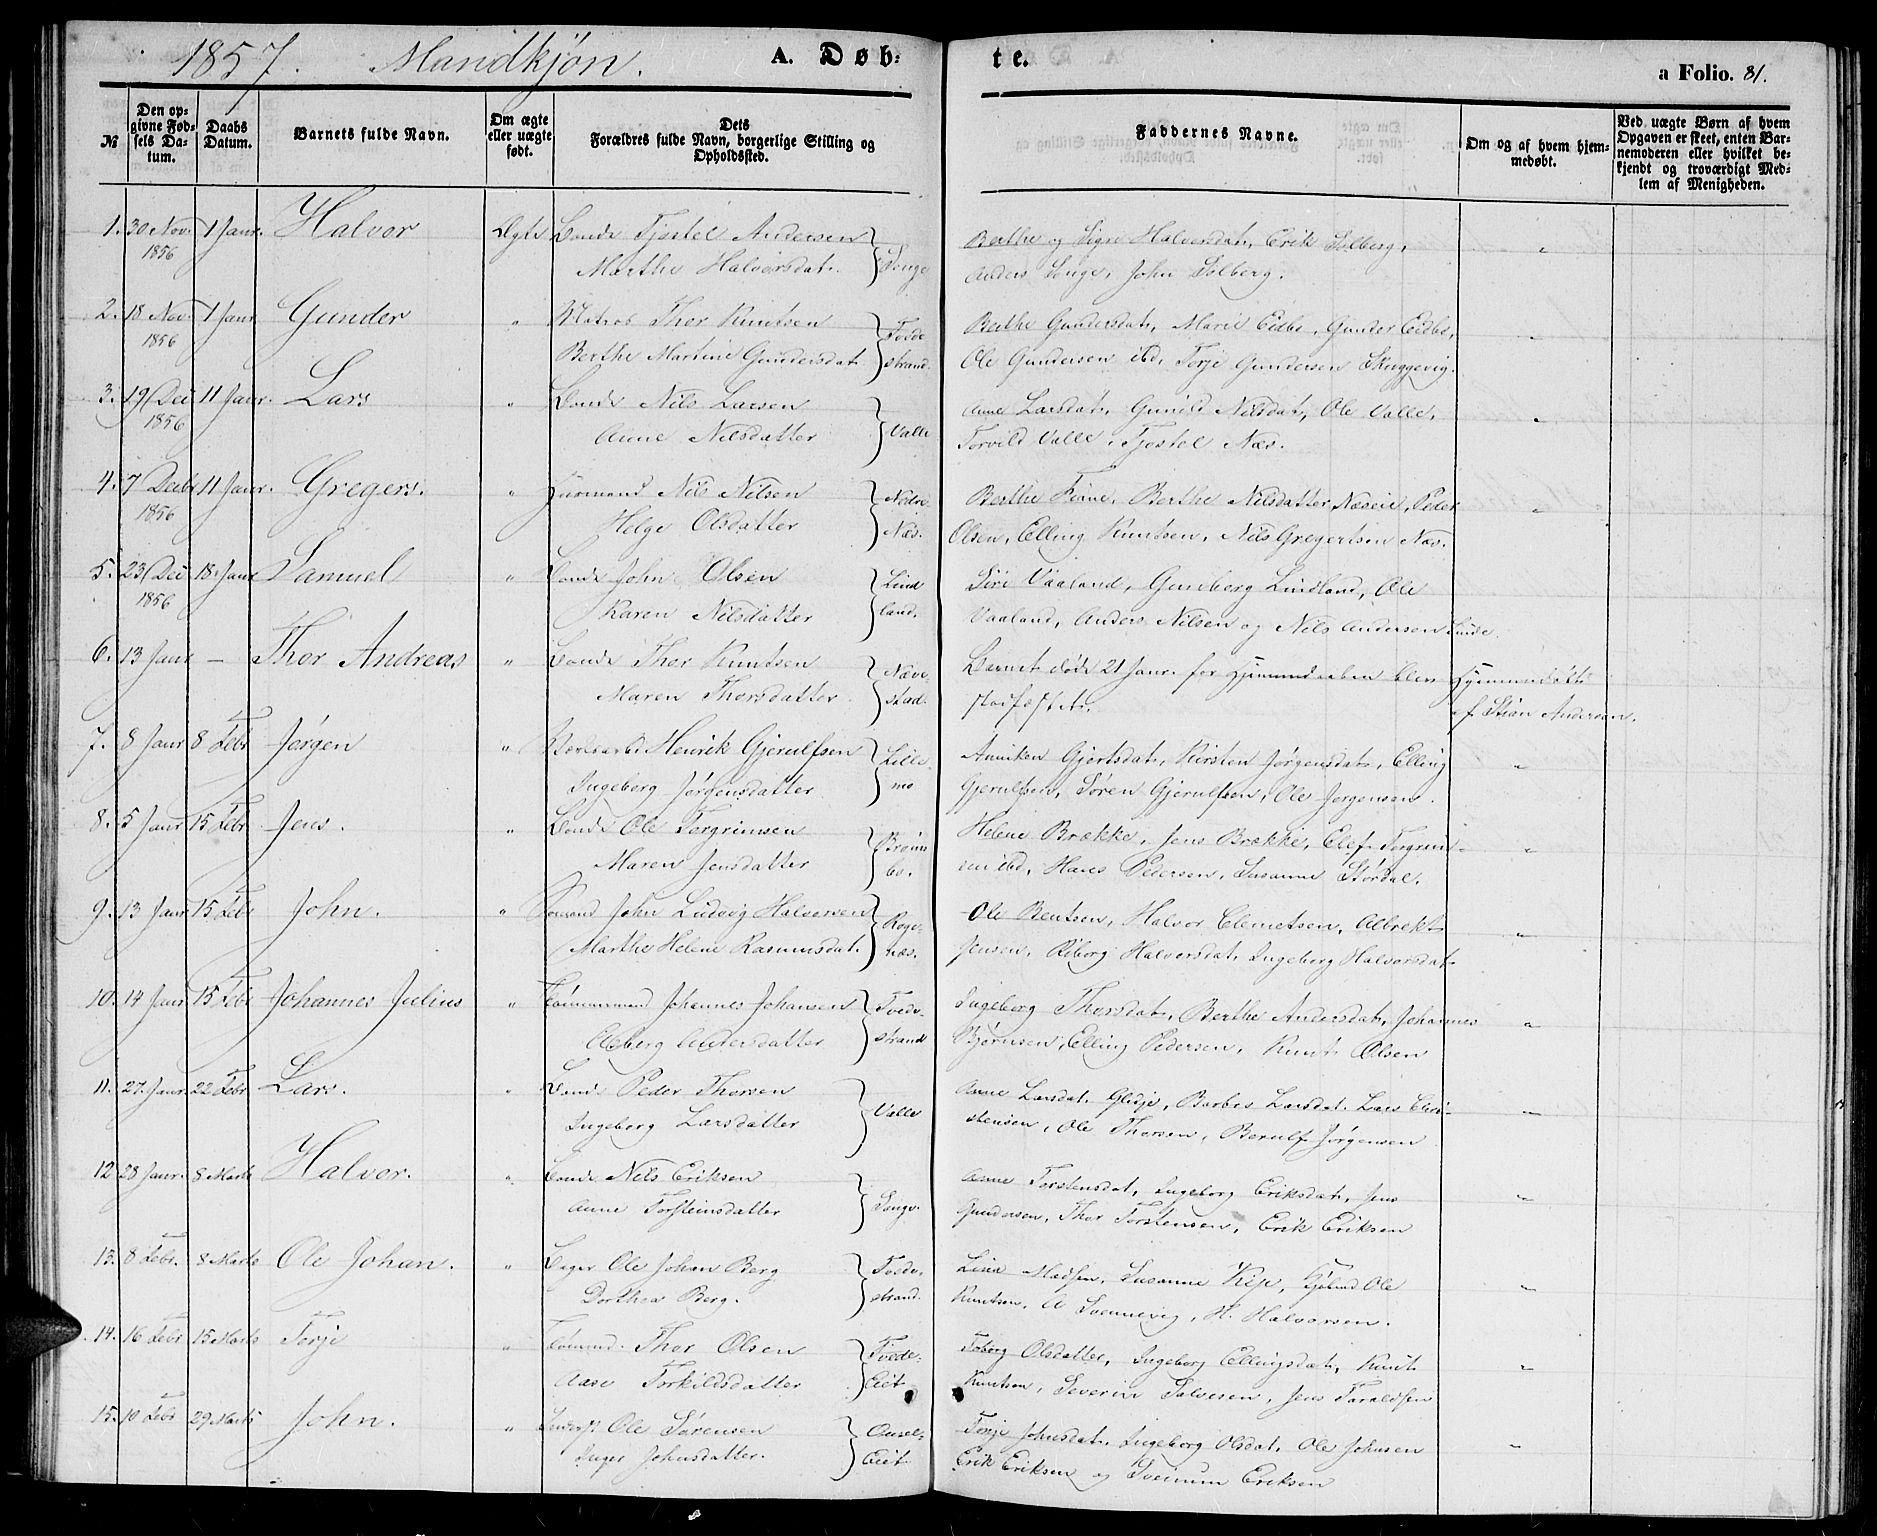 1857. Mandkjøn. A. Døb-te. a Folio. 81.
№ Den opgivne Fødsels Datum. Daabs Datum. Barnets fulde Navn. Om ægte eller uægte født. Dets Forældres fulde Navn, borgerlige Stilling og Opholdssted. Faddernes Navne. Om og af hvem hjemmedøbt. Ved uægte Børn af hvem Opgaven er skeet, enten Barnemoderen eller hvilket bekjendt og troværdigt Medlem af Menigheden.
1. 30 Nov. 1 Janr. Halvor Ægte Bonde Tjøstel Andersen Berthe og Signe Halvorsdat, Erik Solberg, "
1856 Marthe Halvorsdat. Songe Anders Songe, John Solberg.
2. 18 Nov. 1 Janr Gunder " Matros Thor Knutsen Tvede Berthe Gundersdat, Marie Eidbo, Gunder Eidbo, "
1856 Berthe Martine Gundersdat strand. Ole Gundersen ibd, Torje Gundersen Skuggevig.
3. 19 Dec 11 Janr. Lars " Bonde Nils Larsen Anne Larsdat, Gunild Nilsdat, Ole Valle, "
1856 Anne Nilsdatter Valle Torvild Valle, Tjøstel Næs.
4. 7 Decbr 11 Janr. Gregers. " Huusmand Nils Nilsen Nedre Berthe Fone, Berthe Nilsdatter Næseie, Peder "
1856 Helge Olsdatter Næs. Olsen, Elling Knutsen, Nils Gregertsen Næs.
5. 23 Dec 18 Janr Samuel " Bonde John Olsen Lind Siri Vaaland, Gunborg Lindland, Ole
1856 Karen Nilsdatter land. Vaaland, Anders Nilsen og Nils Andersen Linde.
6. 13 Janr — Thor Andreas " Bonde Thor Knutsen Næve- Barnet døde 21 Janr. før Hjemmedaaben blev Hjemmedøbt
Maren Thorsdatter stad. stadfæstet. af Stian Andersen.
7. 8 Janr 8 Febr Jørgen " Henrik Gjerulfsen Lille- Anniken Gjertsdat, Kirsten Jørgensdat, Elling "
Ingeborg Jørgensdatter mo Gjerulfsen, Søren Gjerulfsen, Ole Jørgensen.
8. 5 Janr 15 Febr Jens. " Bonde Ole Torgrimsen Brøms Helene Brække, Jens Brække, Elef Torgrim- "
Maren Jensdatter bo. sen ibd, Hans Pedersen, Susanne Stordal.
9. 13 Janr 15 Febr John. " Sømand John Ludvig Halvorsen Roge- Ole Bentsen, Halvor Clemetsen, Albrekt "
Marthe Helene Rasmusdat. næs. Jensen, Riborg Halvorsdat, Ingeborg Halvorsdat
10. 14 Janr 15 Febr Johannes Julius " Tømmermand Johannes Johansen Tvede- Ingeborg Thorsdat, Berthe Andersdat, Johannes "
Oleberg Andersdatter strand Bjørnsen, Elling Pedersen, Knut Olsen
11. 27 Janr 22 Febr Lars. " Bonde Peder Thorsen Anne Larsdat Glidje, Barbro Larsdat. Lars Chri- "
Ingeborg Larsdatter Valle stensen, Ole Thorsen, Berulf Jørgensen
12 28 Janr. 8 Marts Halvor. " Bonde Nils Eriksen Anne Torstensdat, Ingeborg Eriksdat, Jens "
Anne Torsteinsdatter Songe. Gundersen, Thor Torstensen, Erik Eriksen
13. 8 Febr. 8 Marts Ole Johan. " Bager Ole Johan Berg Tvede- Lina Madsen, Susanne Kip, Kjøbmd Ole "
Dorthea Berg. strand. Knutsen, A Svennevig, H. Halvorsen.
14. 16 Febr 15 Marts Torje " Tømmd. Thor Olsen Tvede- Toborg Olsdatter, Ingeborg Ellingsdat, Knut "
Aase Torkildsdatter Eiet Knutsen, Severin Salvesen, Jens Taraldsen
15. 10 Febr 29 Marts John. " Inderst Ole Sørensen Ausel- Torje Johnsdat, Ingeborg Olsdat, Ole Johnsen "
Inger Johnsdatter. Eiet Erik Eriksen og Sveinum Eriksen